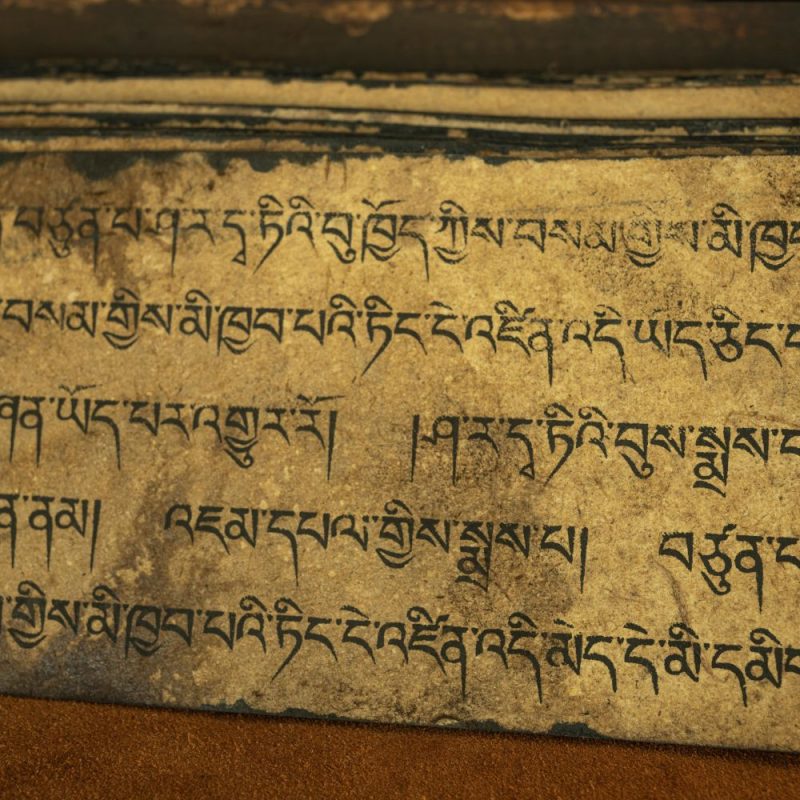 བཙུན་པ་ཤ་ར་དྭ་ཏིའི་བུ་ཁྱོད་ཀྱིས་བསམ་གྱིས་མི་ཁྱབ
བསམ་གྱིས་མི་ཁྱབ་པའི་ཏིང་ངེ་འཛིན་འདི་ཡད་ཅིང་
ཤན་ཡོད་པར་འགྱུར་རོ། །ཤ་ར་དྭ་ཏིའི་བུས་སྨྲས་
ན་ནམ། འཇམ་དཔལ་གྱིས་སྨྲས་པ། བཙུན་
གྱིས་མི་ཁྱབ་པའི་ཏིང་ངེ་འཛིན་འདི་མེད་དེ་མི་དམི